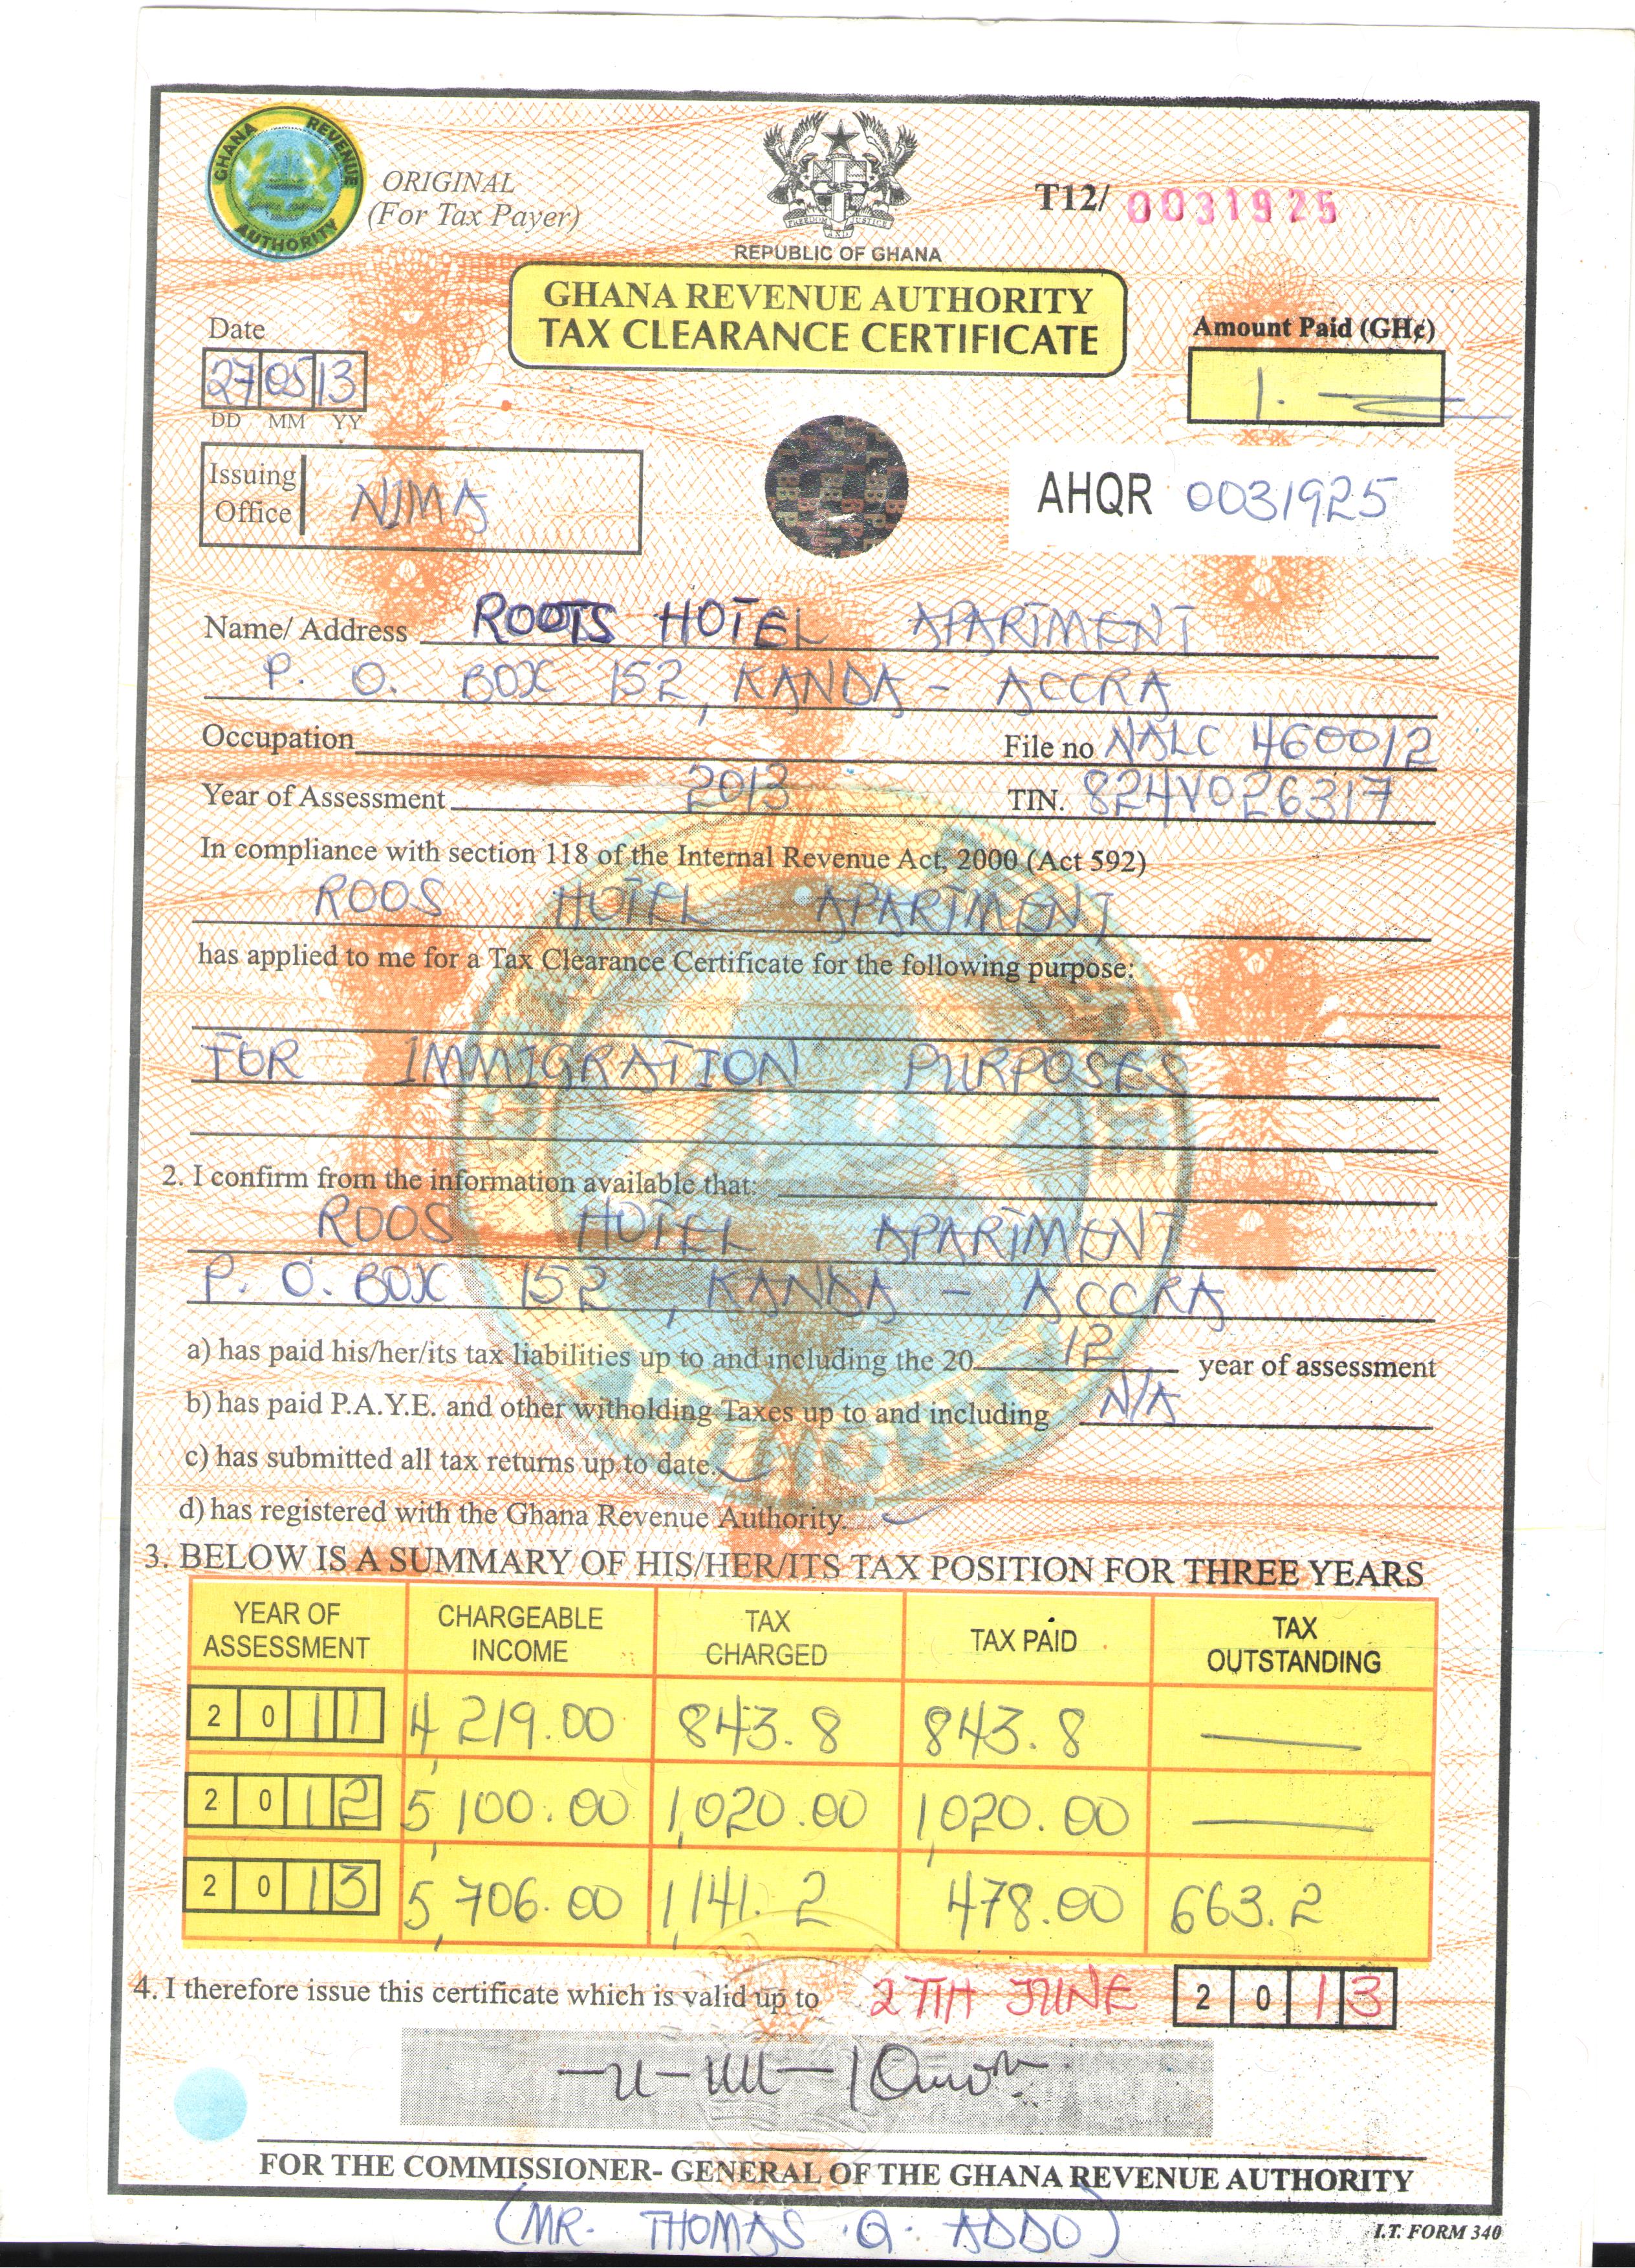 GHANA REVENUE AUTHORITY
ORIGINAL
(For Tax Payer)
T12/ 0031925
FREEDOM AND JUSTICE
REPUBLIC OF GHANA
GHANA REVENUE AUTHORITY
TAX CLEARANCE CERTIFICATE
Date
27 05 13
DD MM YY
Amount Paid (GH¢)
1.
Issuing Office NIMA
AHQR 0031925
Name/ Address ROOTS HOTEL APARTMENT
P. O. BOX 152, KANDA - ACCRA
Occupation
File no NALC 460012
Year of Assessment 2013
TIN. 824V026317
In compliance with section 118 of the Internal Revenue Act, 2000 (Act 592)
ROOS HOTEL APARTMENT
has applied to me for a Tax Clearance Certificate for the following purpose:
FOR IMMIGRATION PURPOSES
2. I confirm from the information available that:
ROOS HOTEL APARTMENT
P. O. BOX 152, KANDA - ACCRA
a) has paid his/her/its tax liabilities up to and including the 20 12 year of assessment
b) has paid P.A.Y.E. and other witholding Taxes up to and including N/A
c) has submitted all tax returns up to date.
d) has registered with the Ghana Revenue Authority.
3. BELOW IS A SUMMARY OF HIS/HER/ITS TAX POSITION FOR THREE YEARS
YEAR OF ASSESSMENT CHARGEABLE INCOME TAX CHARGED TAX PAID TAX OUTSTANDING
2011 4,219.00 843.8 843.8 —
2012 5,100.00 1,020.00 1,020.00 —
2013 5,706.00 1,141.2 478.00 663.2
4. I therefore issue this certificate which is valid up to 27TH JUNE 2013
FOR THE COMMISSIONER- GENERAL OF THE GHANA REVENUE AUTHORITY
(MR. THOMAS Q. ADDO)
I.T. FORM 340